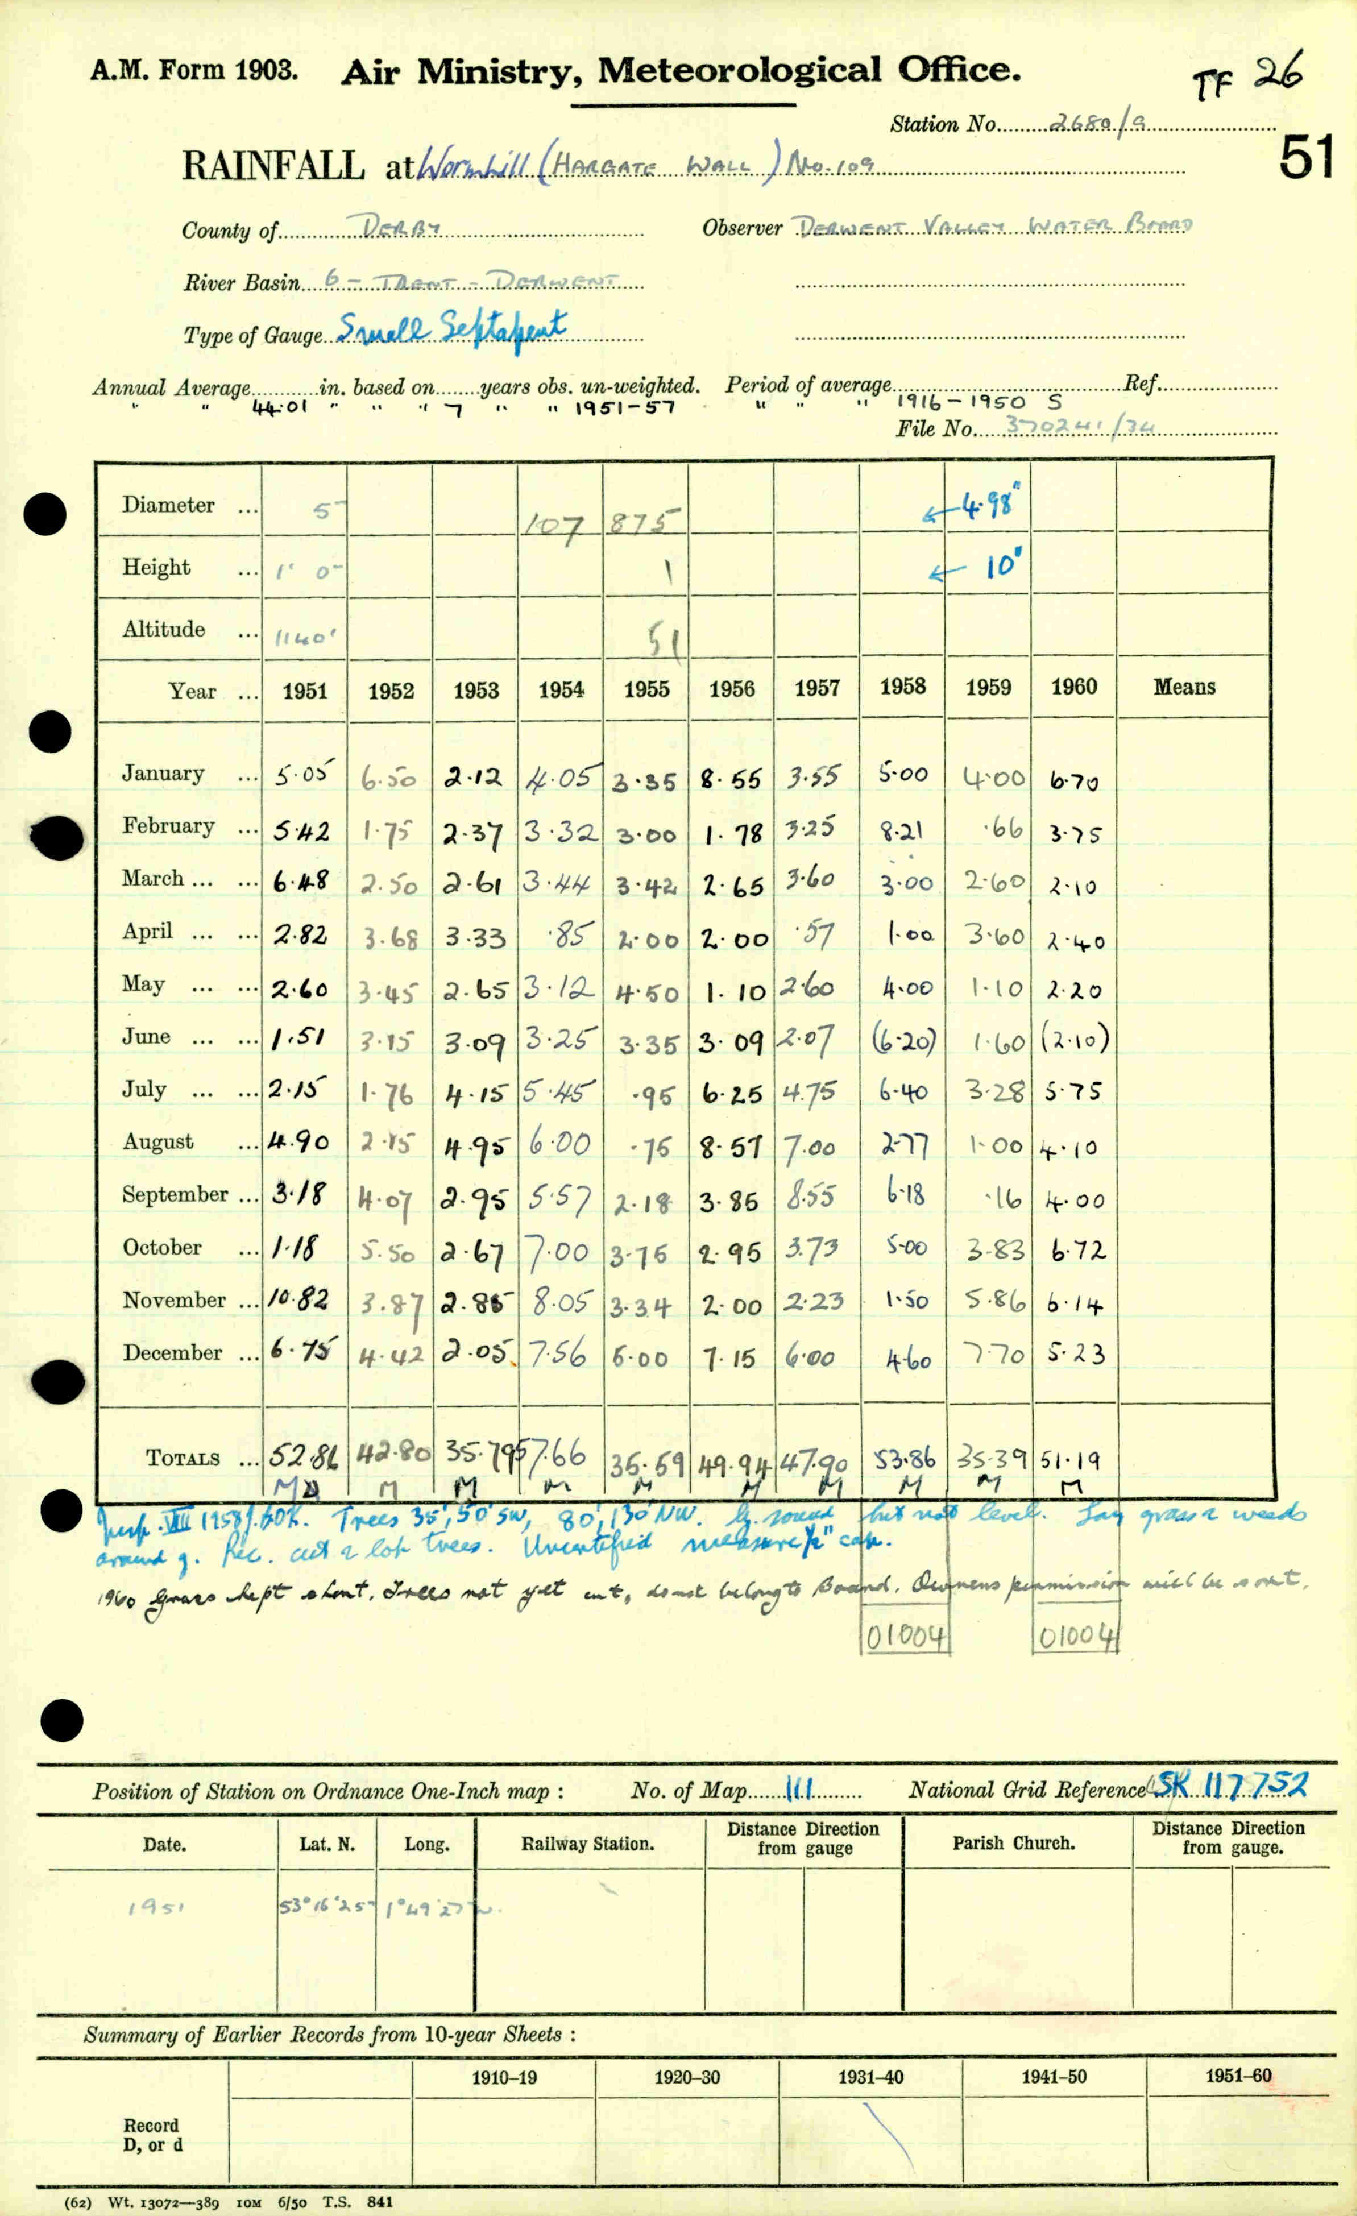 A.M. Form 1903. Air Ministry, Meteorological Office. TF 26
Station No. 2680/9
51
RAINFALL at Wormhill (HARGATE WALL) No. 109
County of DERBY Observer DERWENT VALLEY WATER BOARD
River Basin 6 - TRENT - DERWENT
Type of Gauge Small Septapent
Annual Average in. based on years obs. un-weighted. Period of average Ref.
" " 44.01 " " " 7 " " 1951-57 " " " 1916-1950 S
File No. 370241/34
Diameter ... 5" 107 875 ← 4.98"
Height ... 1' 0" 1 ← 10"
Altitude ... 1140' 51
Year ... 1951 1952 1953 1954 1955 1956 1957 1958 1959 1960 Means
January ... 5.05 6.50 2.12 4.05 3.35 8.55 3.55 5.00 4.00 6.70
February ... 5.42 1.75 2.37 3.32 3.00 1.78 3.25 8.21 .66 3.75
March ... ... 6.48 2.50 2.61 3.44 3.42 2.65 3.60 3.00 2.60 2.10
April ... ... 2.82 3.68 3.33 .85 2.00 2.00 .57 1.00 3.60 2.40
May ... ... 2.60 3.45 2.65 3.12 4.50 1.10 2.60 4.00 1.10 2.20
June ... ... 1.51 3.15 3.09 3.25 3.35 3.09 2.07 (6.20) 1.60 (2.10)
July ... ... 2.15 1.76 4.15 5.45 .95 6.25 4.75 6.40 3.28 5.75
August ... 4.90 2.15 4.95 6.00 .75 8.57 7.00 2.77 1.00 4.10
September ... 3.18 4.07 2.95 5.57 2.18 3.85 8.55 6.18 .16 4.00
October ... 1.18 5.50 2.67 7.00 3.75 2.95 3.73 5.00 3.83 6.72
November ... 10.82 3.87 2.85 8.05 3.34 2.00 2.23 1.50 5.86 6.14
December ... 6.75 4.42 2.05 7.56 5.00 7.15 6.00 4.60 7.70 5.23
TOTALS ... 52.86 42.80 35.79 57.66 35.59 49.94 47.90 53.86 35.39 51.19
M M M M M M M M M M
Insp. VIII 1958 Trees 35', 50' SW, 80', 130' NW. G. sound but not level. Long grass & weeds
around g. Rec. cut & lop trees. Uncertified measure ½" cap.
1960 Grass kept short. Trees not yet cut, do not belong to Board. Owners permission will be sought.
01004 01004
Position of Station on Ordnance One-Inch map : No. of Map 111 National Grid Reference SK 117752
Date. Lat. N. Long. Railway Station. Distance from Direction gauge Parish Church. Distance from Direction gauge.
1951 53° 16' 25" 1° 49' 27" W.
Summary of Earlier Records from 10-year Sheets :
1910-19 1920-30 1931-40 1941-50 1951-60
Record
D, or d
(62) Wt. 13072—389 10M 6/50 T.S. 841